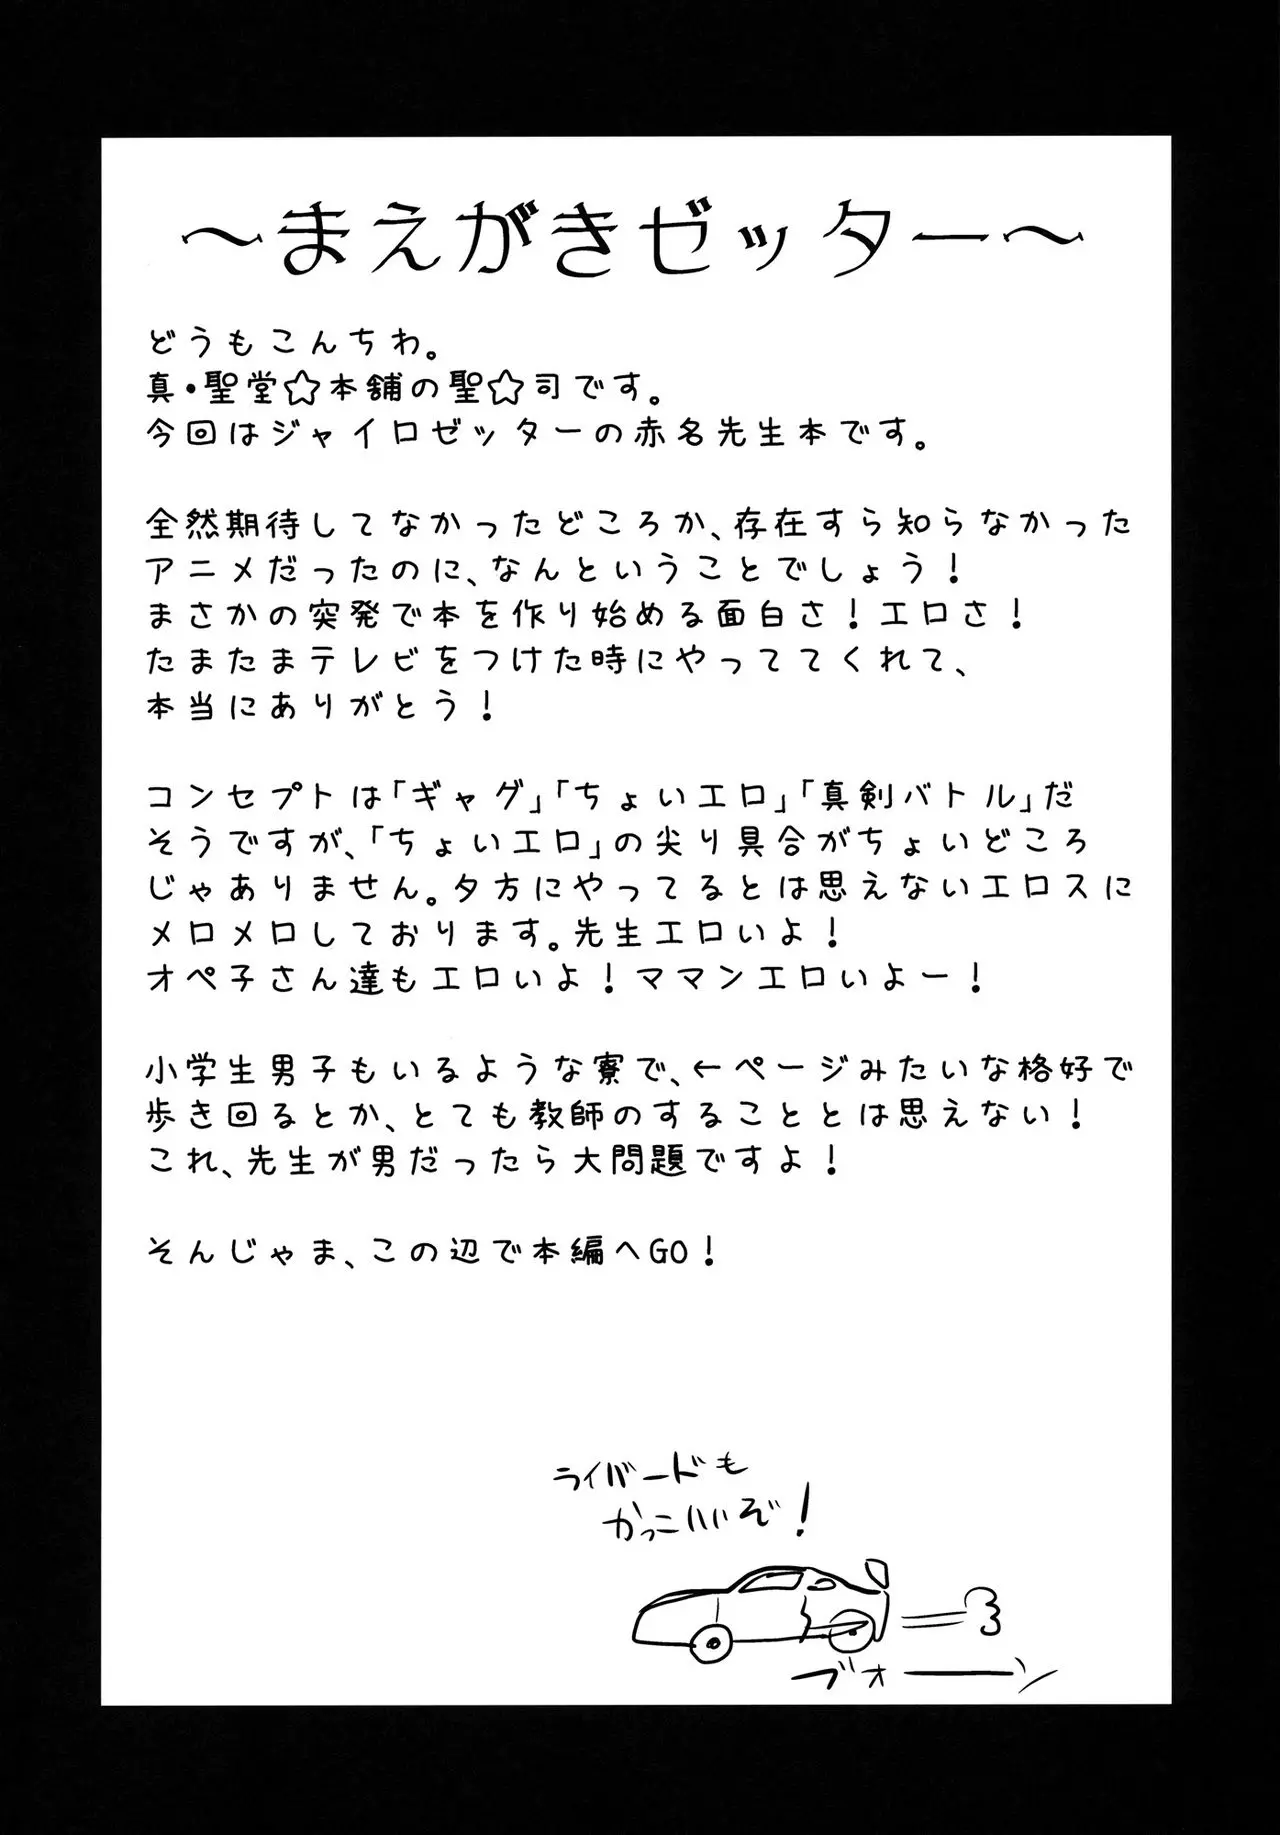 ～まえがきゼッター～
どうもこんちわ。
真・聖堂☆本舗の聖☆司です。
今回はジャイロゼッターの赤名先生本です。
全然期待してなかったどころか、存在すら知らなかった
アニメだったのに、なんということでしょう！
まさかの突発で本を作り始める面白さ！エロさ！
たまたまテレビをつけた時にやっててくれて、
本当にありがとう！
コンセプトは「ギャグ」「ちょいエロ」「真剣バトル」だ
そうですが、「ちょいエロ」の尖り具合がちょいどころ
じゃありません。夕方にやってるとは思えないエロスに
メロメロしております。先生エロいよ！
オペ子さん達もエロいよ！ママンエロいよー！
小学生男子もいるような寮で、←ページみたいな格好で
歩き回るとか、とても教師のすることとは思えない！
これ、先生が男だったら大問題ですよ！
そんじゃま、この辺で本編へGO！
ライバードも
かっこいいぞ！
ブォーーン